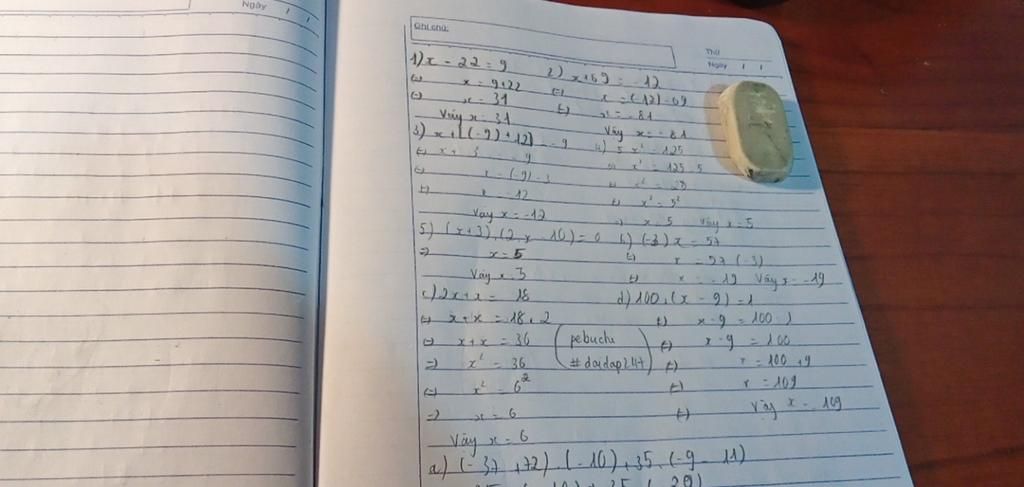 Ngày / /
Ghi chú:
Thứ
Ngày / /
1) x - 22 = 9
(=) x = 9+22
(=) x = 31
Vậy x = 31
2) x+69 = -12
(=) x = (-12) - 69
(=) x = -81
Vậy x = -81
3) x + [(-9) + 12] = -9
(=) x + 3 = -9
(=) x = (-9) - 3
(=) x = -12
Vậy x = -12
4) 5 x² = 125
(=) x² = 125 : 5
(=) x² =
(=) x² = 5²
=) x = 5 Vậy x = 5
5) (x+3).(2x - 10) = 0
=) x = 5
Vậy x = 3
b) (-3) x = 57
(=) x = 57 : (-3)
(=) x = -19 Vậy x = -19
c) 2x + x = 18
(=) x + x = 18 . 2
(=) x + x = 36
=) x² = 36
(=) x² = 6²
=) x = 6
Vậy x = 6
pebuche
#daidap247
d) 100 : (x - 9) = 1
(=) x - 9 = 100 : 1
(=) x - 9 = 100
(=) x = 100 + 9
(=) x = 109
(=) Vậy x = 109
a) (-37 + 72) . (-10) + 35 . (-9 - 11)